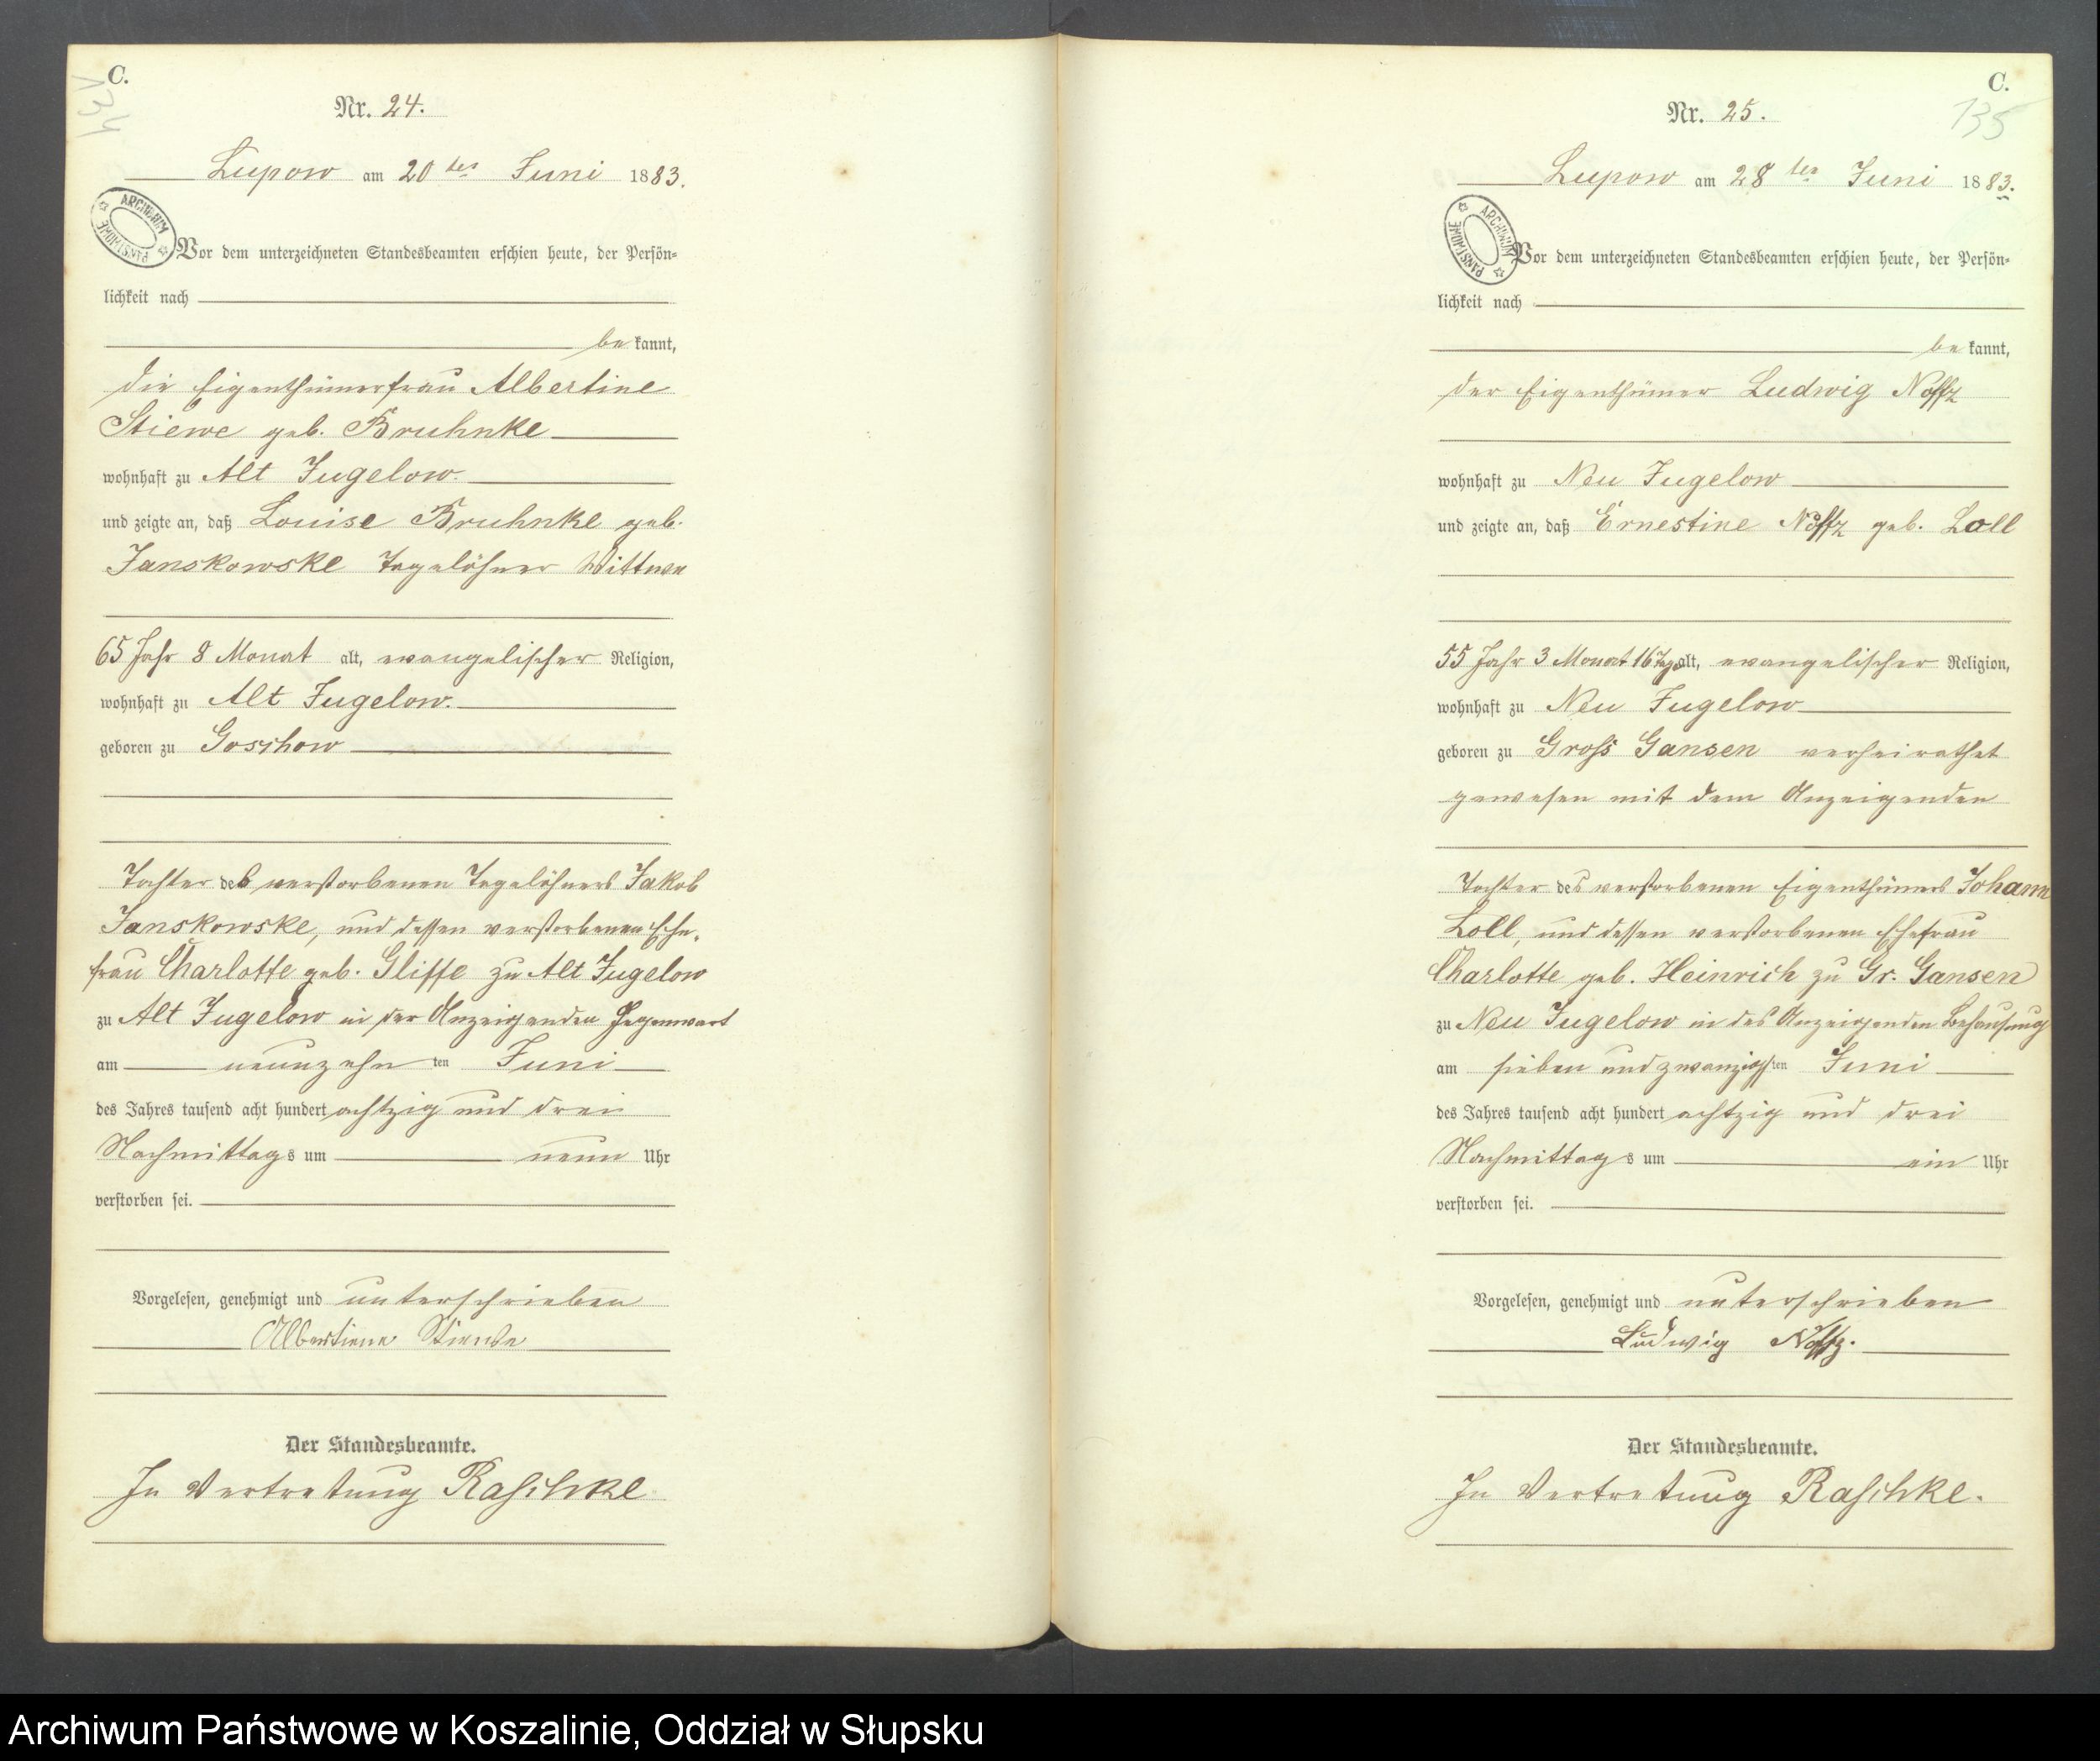 C.
134
Nr. 24.
Lupow am 20ten Juni 1883.
ARCHIWUM PAŃSTWOWE
Vor dem unterzeichneten Standesbeamten erschien heute, der Persön-
lichkeit nach
bekannt,
die Eigenthümerfrau Albertine
Stiewe geb. Bruhnke
wohnhaft zu Alt Jugelow.
und zeigte an, daß Louise Bruhnke geb.
Janskowske Tagelöhner Wittwe
65 Jahr 8 Monat alt, evangelischer Religion,
wohnhaft zu Alt Jugelow.
geboren zu Goschow
Tochter des verstorbenen Tagelöhners Jakob
Janskowske, und dessen verstorbenen Ehe-
frau Charlotte geb. Gliffe zu Alt Jugelow
zu Alt Jugelow in der Anzeigenden Gegenwart
am neunzehnten Juni
des Jahres tausend acht hundert achtzig und drei
Nachmittags um neun Uhr
verstorben sei.
Vorgelesen, genehmigt und unterschrieben
Albertiene Stiewe
Der Standesbeamte.
In Vertretung Raschke
C.
135
Nr. 25.
Lupow am 28ten Juni 1883.
ARCHIWUM PAŃSTWOWE
Vor dem unterzeichneten Standesbeamten erschien heute, der Persön-
lichkeit nach
bekannt,
der Eigenthümer Ludwig Noffz
wohnhaft zu Neu Jugelow
und zeigte an, daß Ernestine Noffz geb. Loll
55 Jahr 3 Monat 16 Tag alt, evangelischer Religion,
wohnhaft zu Neu Jugelow
geboren zu Gross Gansen verheirathet
gewesen mit dem Anzeigenden
Tochter des verstorbenen Eigenthümers Johann
Loll, und dessen verstorbenen Ehefrau
Charlotte geb. Heinrich zu Gr. Gansen
zu Neu Jugelow in des Anzeigenden Behausung
am sieben und zwanzigsten Juni
des Jahres tausend acht hundert achtzig und drei
Nachmittags um ein Uhr
verstorben sei.
Vorgelesen, genehmigt und unterschrieben
Ludwig Noffz.
Der Standesbeamte.
In Vertretung Raschke.
Archiwum Państwowe w Koszalinie, Oddział w Słupsku